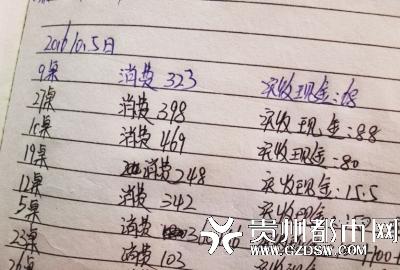 2016.10.5日
9桌 消费 323 实收现金:68
27桌 消费 398 实收现金:88
1c桌 消费 469 实收现金:80
19桌 消费 248 实收现金:15.5
12桌 消费 342 实收现金:
5桌 消费
23桌 消费 103
贵州都市网
GZDSW